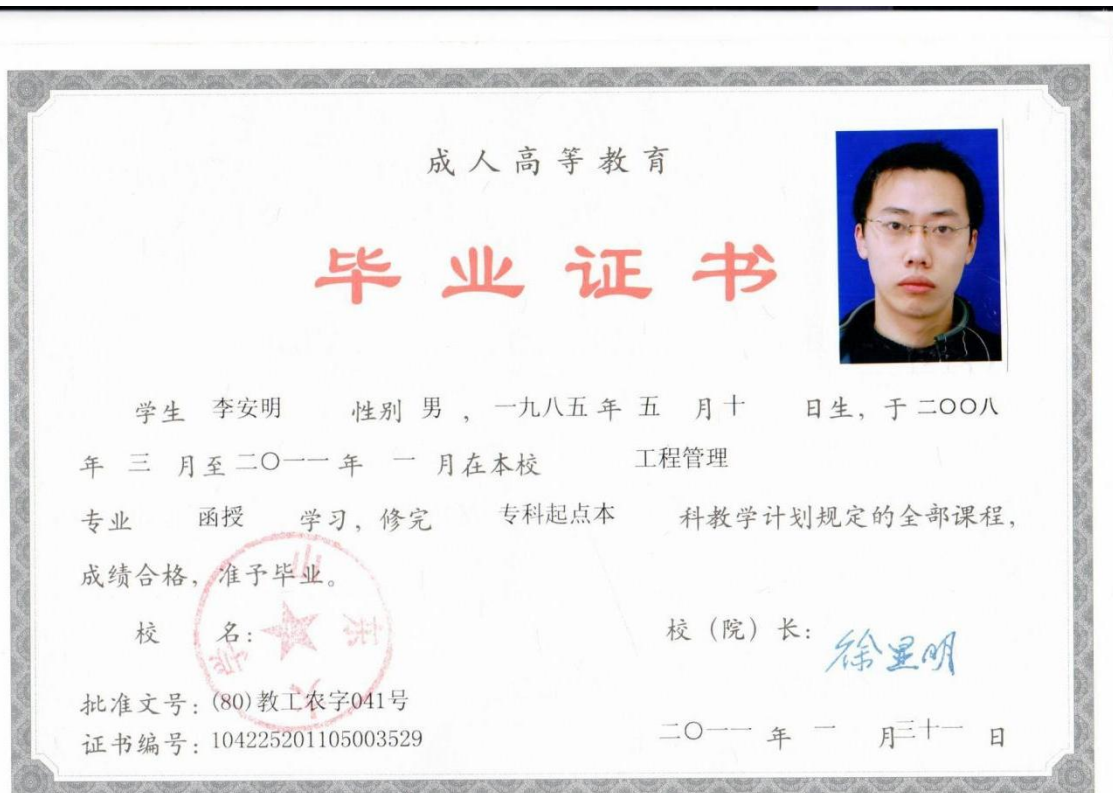 成人高等教育
毕业证书
学生 李安明 性别 男 ，一九八五年 五 月十 日生，于二〇〇八
年 三 月至二〇一一年 一 月在本校 工程管理
专业 函授 学习，修完 专科起点本 科教学计划规定的全部课程，
成绩合格，准予毕业。
校 名：
山东大学
校（院）长：
徐显明
批准文号：(80)教工农字041号
证书编号：104225201105003529
二〇一一 年 一 月三十一 日